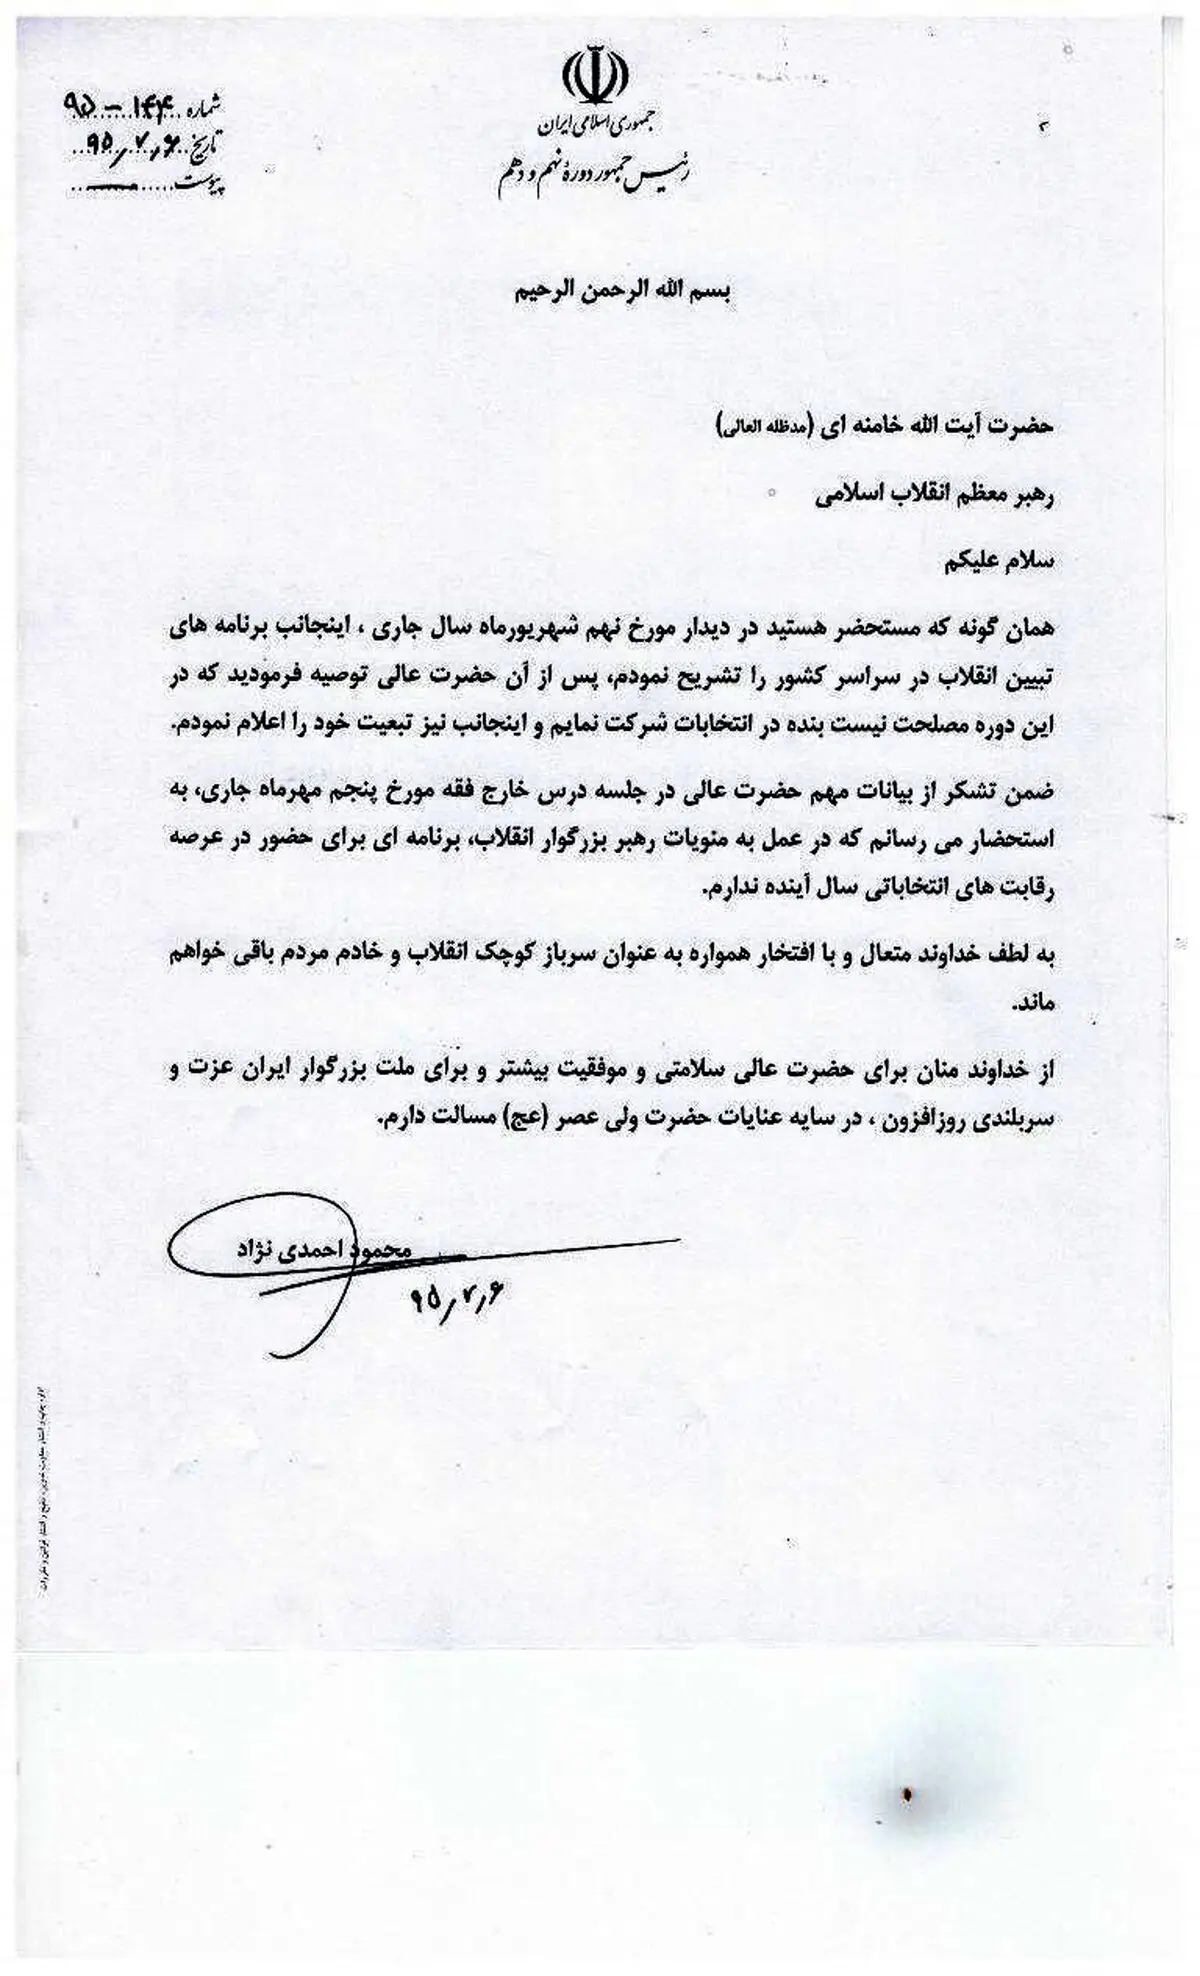 جمهوری اسلامی ایران
رئیس جمهور دورهٔ نهم و دهم
شماره ۱۴۴ – ۹۵
تاریخ ۹۵٫۷٫۶
پیوست
بسم الله الرحمن الرحیم
حضرت آیت الله خامنه ای (مدظله العالی)
رهبر معظم انقلاب اسلامی
سلام علیکم
همان گونه که مستحضر هستید در دیدار مورخ نهم شهریورماه سال جاری ، اینجانب برنامه های
تبیین انقلاب در سراسر کشور را تشریح نمودم، پس از آن حضرت عالی توصیه فرمودید که در
این دوره مصلحت نیست بنده در انتخابات شرکت نمایم و اینجانب نیز تبعیت خود را اعلام نمودم.
ضمن تشکر از بیانات مهم حضرت عالی در جلسه درس خارج فقه مورخ پنجم مهرماه جاری، به
استحضار می رسانم که در عمل به منویات رهبر بزرگوار انقلاب، برنامه ای برای حضور در عرصه
رقابت های انتخاباتی سال آینده ندارم.
به لطف خداوند متعال و با افتخار همواره به عنوان سرباز کوچک انقلاب و خادم مردم باقی خواهم
ماند.
از خداوند منان برای حضرت عالی سلامتی و موفقیت بیشتر و برای ملت بزرگوار ایران عزت و
سربلندی روزافزون ، در سایه عنایات حضرت ولی عصر (عج) مسالت دارم.
محمود احمدی نژاد
۹۵٫۷٫۶